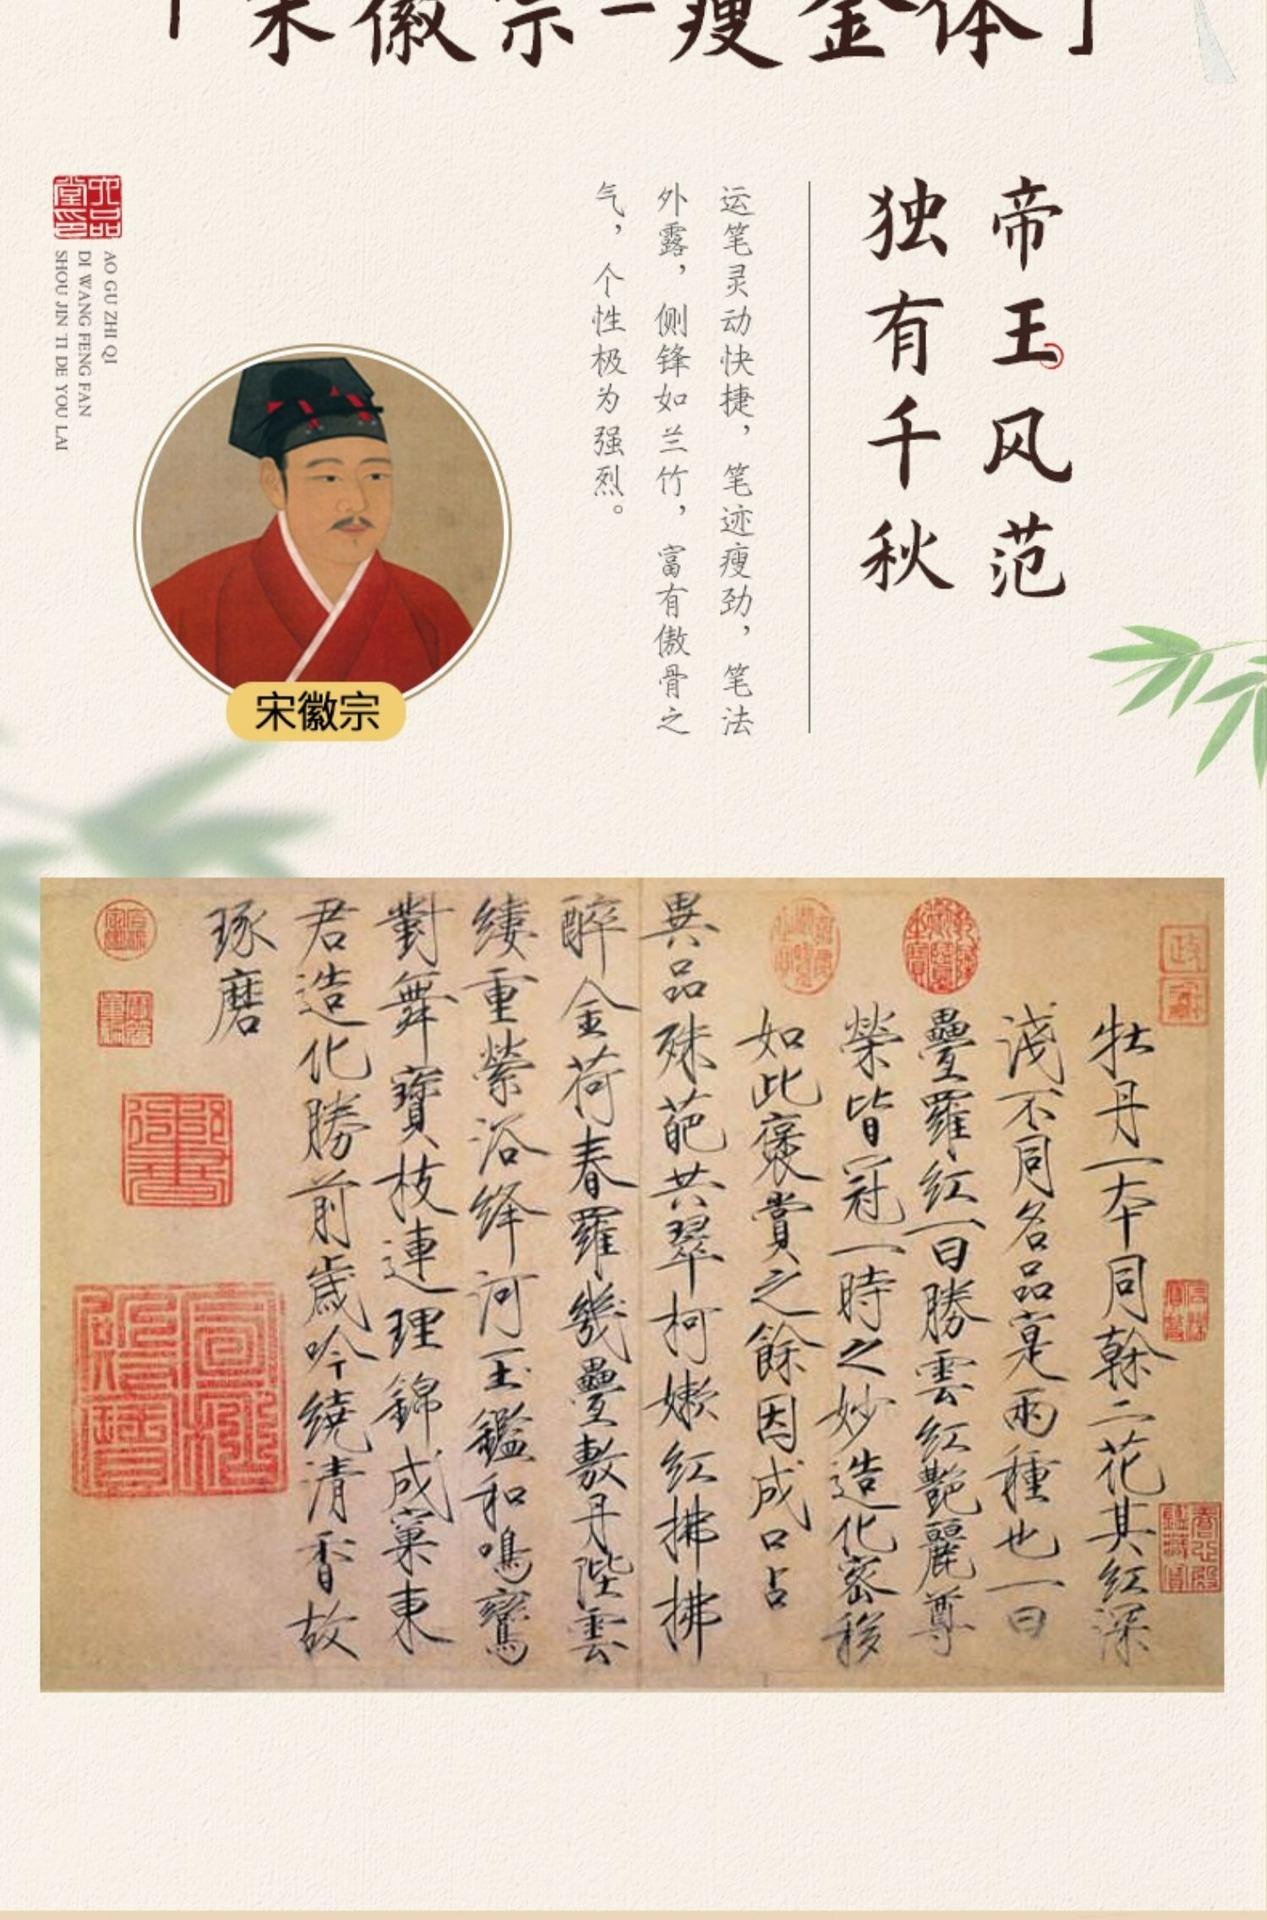 「宋徽宗-瘦金体」
帝王风范
独有千秋
运笔灵动快捷，笔迹瘦劲，笔法
外露，侧锋如兰竹，富有傲骨之
气，个性极为强烈。
六品
堂印
AO GU ZHI QI
DI WANG FENG FAN
SHOU JIN TI DE YOU LAI
宋徽宗
牡丹一本同榦二花其紅深
淺不同名品寔兩種也一曰
疊羅紅一曰勝雲紅艷麗尊
榮皆冠一時之妙造化密移
如此褒賞之餘因成口占
異品殊葩共翠柯嫩紅拂拂
醉金荷春羅幾疊敷丹陛雲
縷重縈浴絳河玉鑑和鳴鸞
對舞寶枝連理錦成窠東
君造化勝前歲吟繞清香故
琢磨